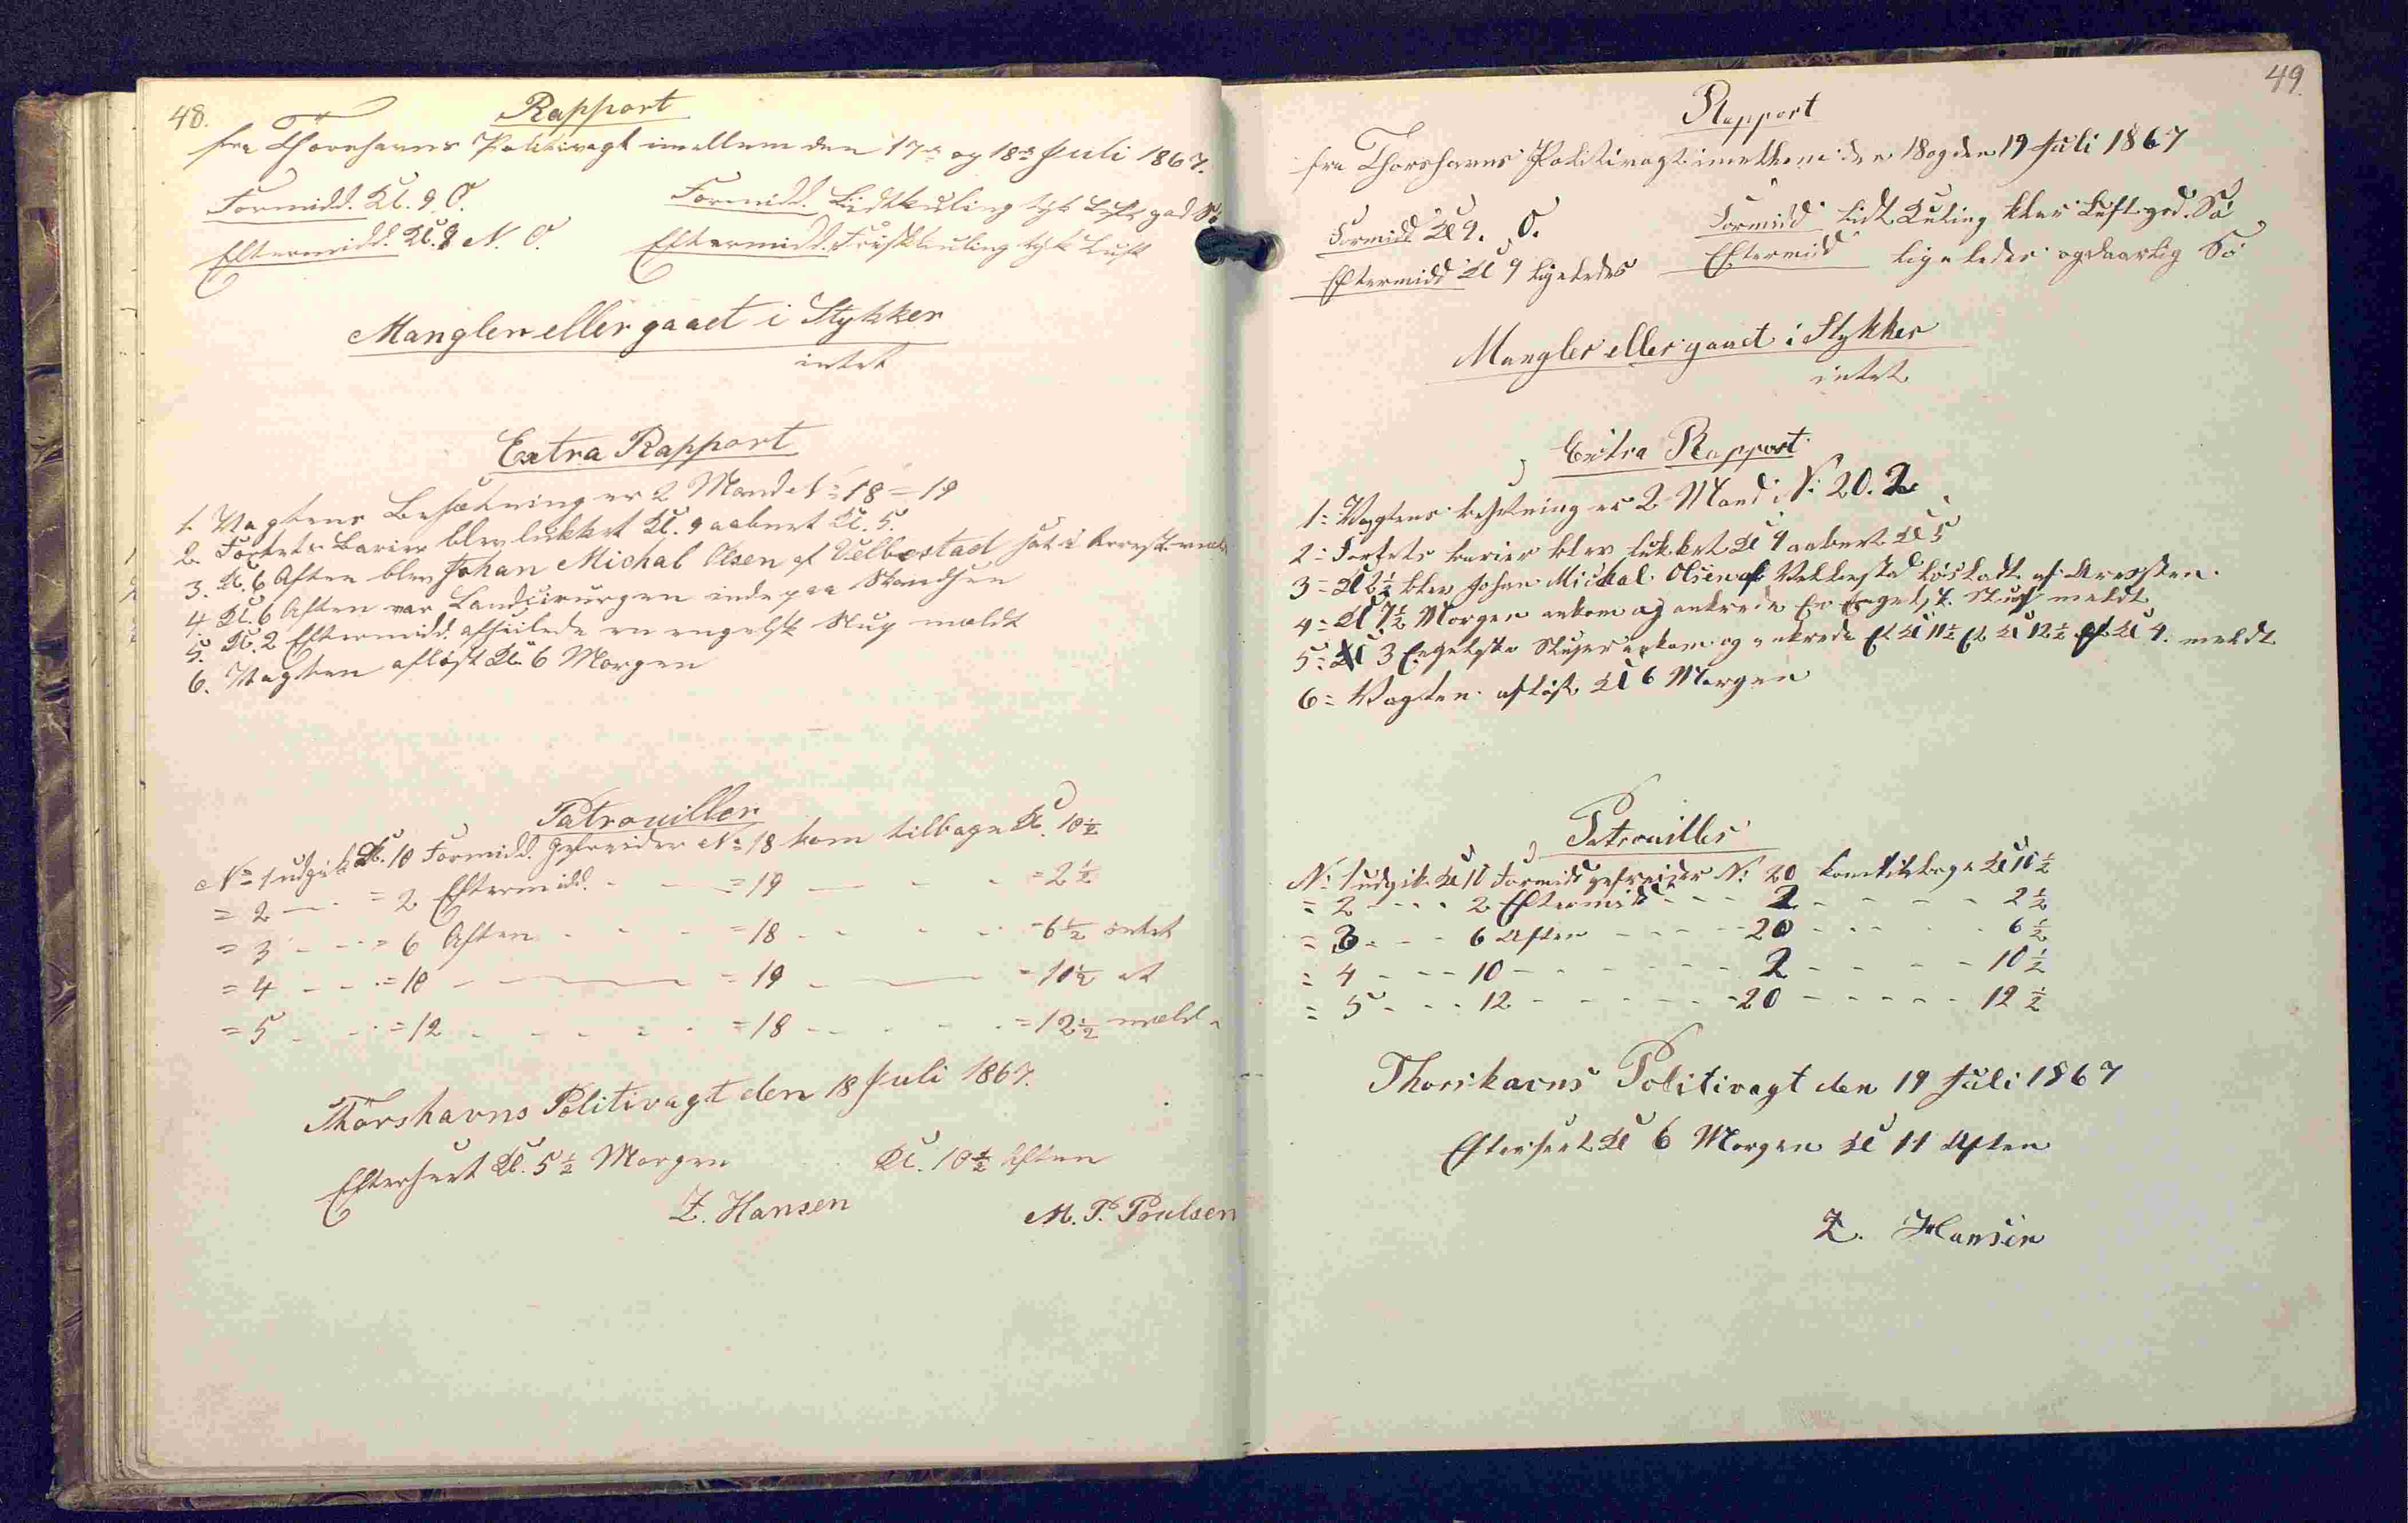 48.
Rapport
fra Thorshavns Politivagt imellem den 17de og 18de Juli 1867.
Formidd. Kl. 9 O.
Formidd. Lidtkuling tyk Luft god Sö
Eftermidd. Kl. 9 N. O.
Eftermidd. Friskkuling tyk Luft
Mangler eller gaaet i Stykker
intet
Extra Rapport
1. Vagtens Besætning er 2 Mand No 18 = 19
2. Fortets Barier blev lukket Kl. 9 aabnet Kl. 5.
3. Kl. 6 Aften blev Johan Michal Olsen af Velbestad sat i Arrest
4 Kl. 6 Aften var Landcirurgen inde paa Skandsen
5. Kl. 2 Eftermidd. afseilede en engelsk Slup meldt
6. Vagten aflöst Kl. 6 Morgen
Patrouiller
No 1 udgik Kl. 10 Formidd. gefreider No 18 kom tilbage Kl. 10½
= 2 — = 2 Eftermidd. - - = 19 — - - = 2½
= 3 - - = 6 Aften - - - = 18 - - - = 6½ intet
= 4 - - = 10 - — = 19 - — = 10½ at
= 5 - - = 12 - - - - = 18 - - - - = 12½ melde
Thorshavns Politivagt den 18 Juli 1867.
Efterseet Kl. 5½ Morgen Kl. 10½ Aften
Z. Hansen
M. P. Poulsen
49.
Rapport
fra Thorshavns Politivagt imellem den 18 og den 19 Juli 1867
Formidd Kl 9. O.
Formidd Lidt Kuling klar Luft god Sö
Eftermidd Kl 9 ligeledes
Eftermidd ligeledes og daarlig Sö
Mangler eller gaaet i Stykker
intet
Extra Rapport
1= Vagtens besetning er 2 Mand N: 20. 2
2= Fortets barier blev lukket Kl 9 aabent Kl 5
3= Kl 2½ blev Johan Michal Olsen af Velbestad lösladt af Aresten.
4= Kl 7½ Morgen ankom og ankrede En Engelsk Slup meldt
5= 3 Engelske Slupper ankom og ankrede Et Kl 11½ Et Kl 12½ Et Kl 4. meldt
6= Vagten aflöst Kl 6 Morgen
Patrouiller
N: 1 udgik Kl 10 Formidd gefreider N: 20 kom tilbage Kl 10½
= 2 - - - 2 Eftermidd - - - 2 - - - - 2½
= 3 - - - 6 Aften - - - - 20 - - - - 6½
= 4 - - - 10 - - - - - - 2 - - - - 10½
= 5 - - - 12 - - - - - - 20 - - - - - 12½
Thorshavns Politivagt den 19 Juli 1867
Efterseet Kl 6 Morgen Kl 11 Aften
Z. Hansen